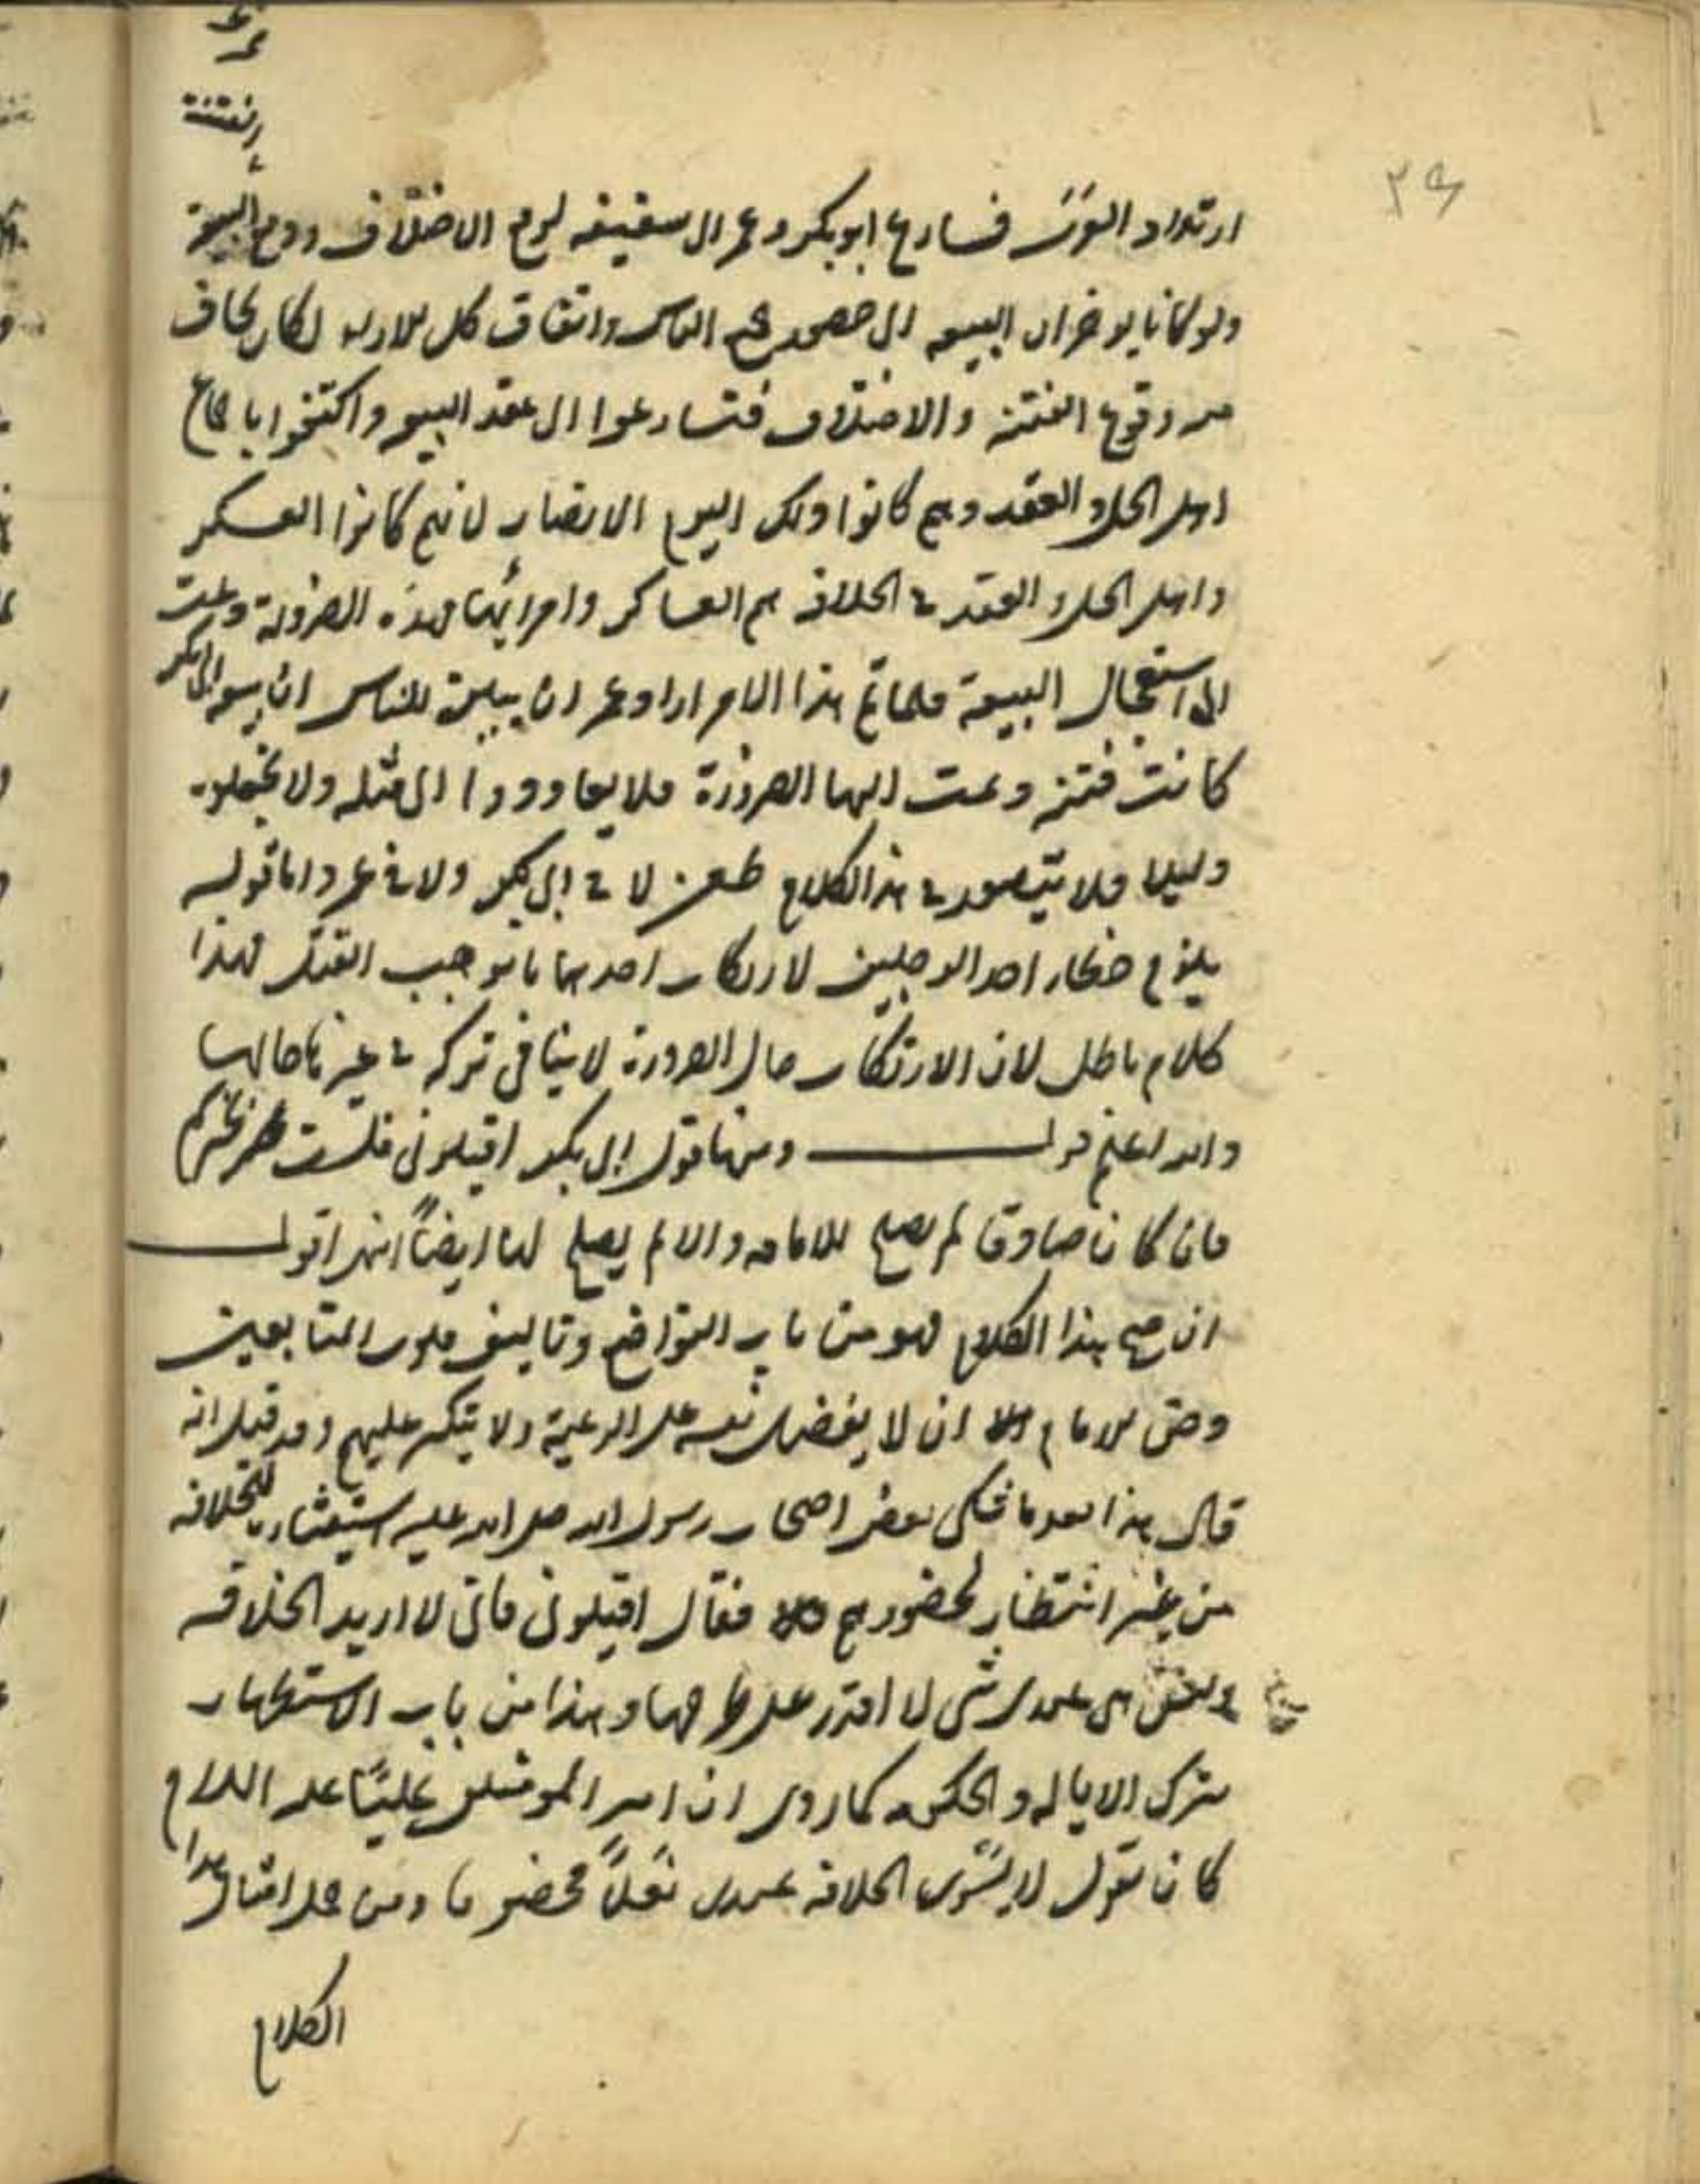 ارتداد العرب فسارع ابوبكر وعمر الى سقيفه لرفع الاختلاف ووقع البيعة
ولو كانا يوخران البيعه الى حضور جميع الناس واتفاق كل للاراء لكان يخاف
من وقوع الفتنه والاختلاف فتسارعوا الى عقد البيعه واكتفوا باجماع
اهل الحل والعقد وهم كانوا ذلك اليوم الانصار لانهم كانوا العسكر
واهل الحل والعقد في الخلافه هم العساكر وامرائها لهذه الضرورة دعت
الى استعجال البيعة فلما تم هذا الامر اراد عمر ان يبين للناس ان بيعة ابى بكر
كانت فتنه دعت اليها الضرورة فلا يعاودوا الى مثله ولا يجعلوه
دليلا فلا يتصور في هذا الكلام طعن لا في ابى بكر ولا في عمر واما قوله
يلزم خطاء احد الرجلين لارتكاب احدهما ما يوجب القتل فهذا
كلام باطل لان الارتكاب حال الضرورة لا ينافى تركه في غير حالها
والله اعلم قوله ومنها قول ابى بكر اقيلونى فلست بخيركم
فان كان صادقا لم يصلح للامامه والا لم يصلح لها ايضاً انتهى اقول
ان صح هذا الكلام فهو من باب التواضع وتاليف قلوب المتابعين
وحق للامام ان لا يفضل نفسه على الرعية ولا يتكبر عليهم وقد قيل انه
قال هذا بعدما شكى بعض اصحاب رسول الله صلى الله عليه استيثاره للخلافه
من غير انتظار لحضورهم فقال اقيلونى فانى لا اريد الخلافه
وليس هى عندى شى لا اقدر على طرحها وهذا من باب الاستظهار
بترك الاياله والحكومه كما روى ان امير المومنين عليًا عليه السلام
كان يقول لا يسوى الخلافه عندى نعلاً مخصوفا ومن حمل امثال هذا
الكلام